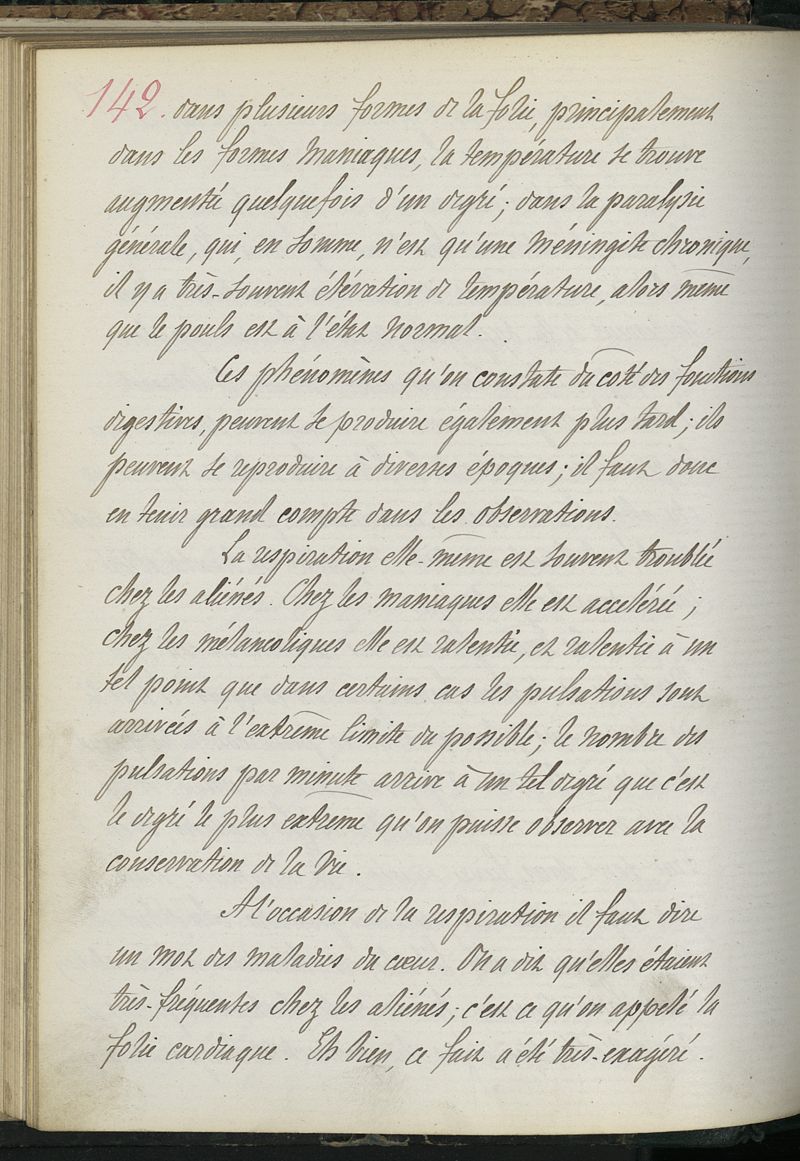 142. dans plusieurs formes de la folie, principalement
dans les formes maniaques, la température se trouve
augmenté quelquefois d'un degré; dans la paralysie
générale, qui, en somme, n'est qu'une méningite chronique,
il y a très-souvent élévation de température, alors même
que le pouls est à l'état normal.
Ces phénomènes qu'on constate du coté des fonctions
digestives, peuvent se produire également plus tard; ils
peuvent se reproduire à diverses époques; il faut donc
en tenir grand compte dans les observations.
La respiration elle-même est souvent troublée
chez les aliénés. Chez les maniaques elle est accelérée;
chez les mélancoliques elle est ralentie, et ralentie à un
tel point que dans certains cas les pulsations sont
arrivées à l'extrême limite du possible; le nombre des
pulsations par minute arrive à un tel degré que c'est
le degré le plus extrême qu'on puisse observer avec la
conservation de la vie.
A l'occasion de la respiration il faut dire
un mot des maladies du cœur. On a dit qu'elles étaient
très-fréquentes chez les aliénés; c'est ce qu'on appelé la
folie cardiaque. Eh bien, ce fait a été très-exagéré.